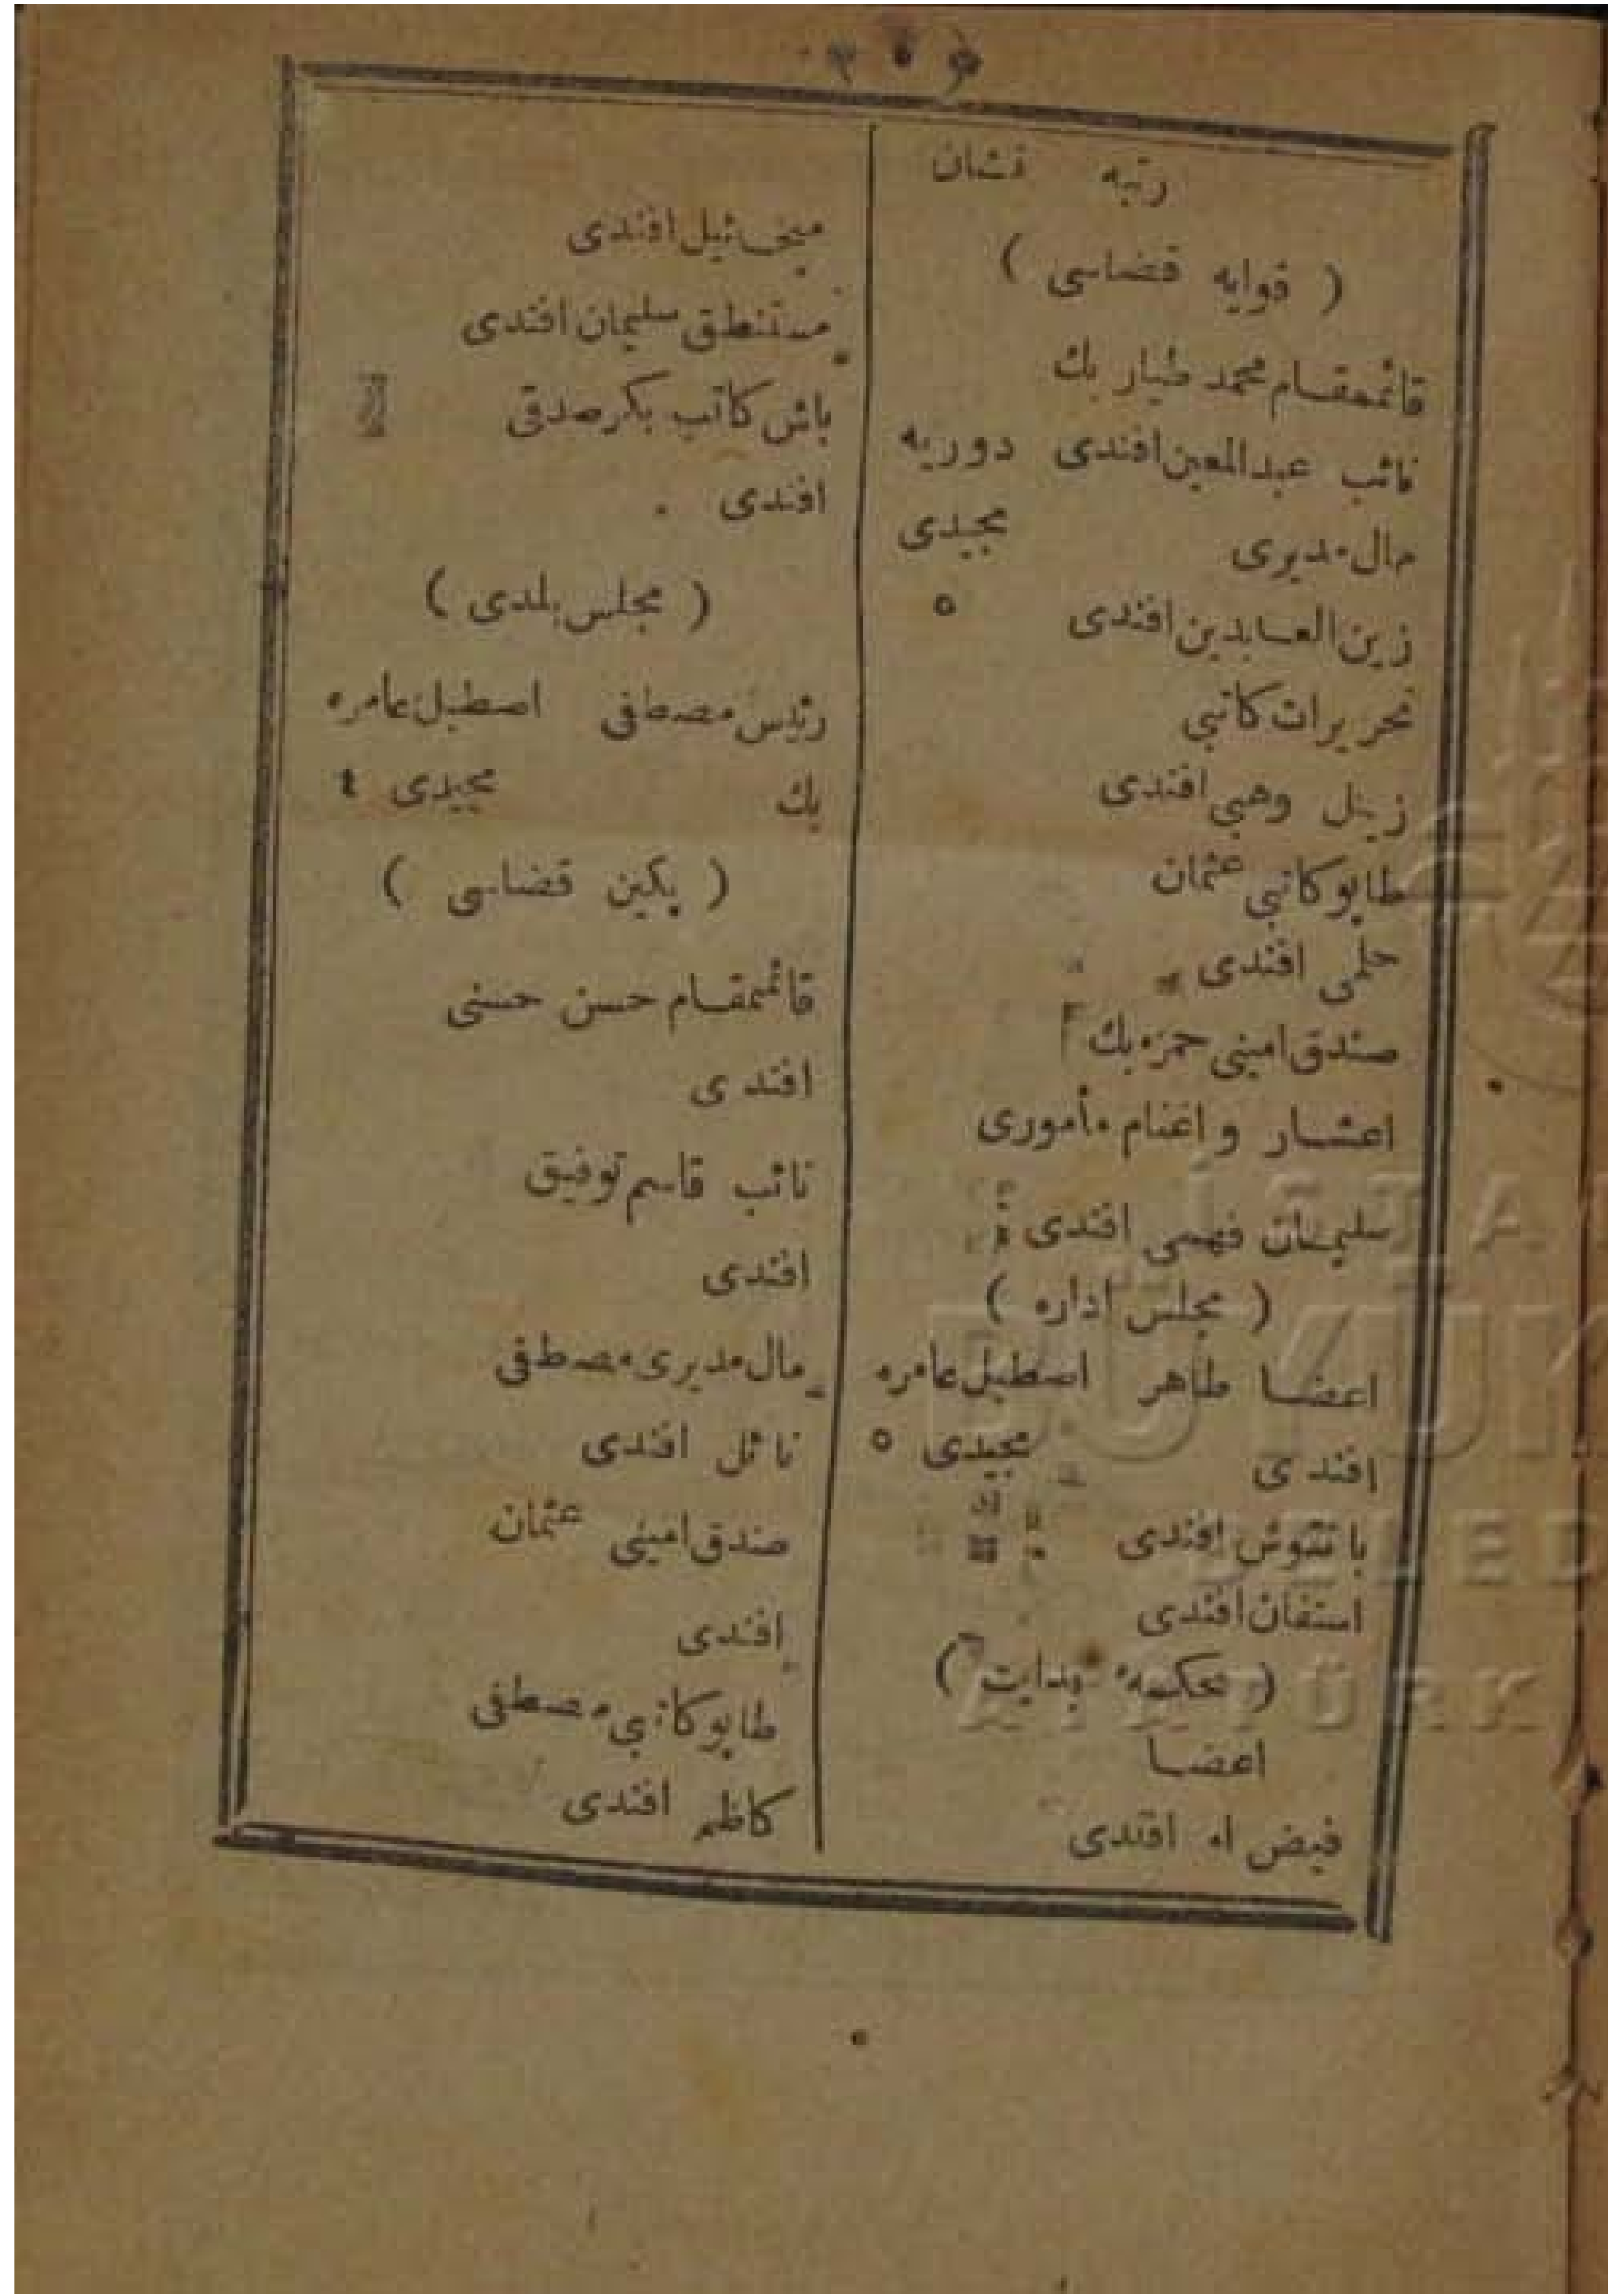 رتبه نشان
( قوايه قضاسی )
قائممقام محمد طيار بك
نائب عبدالمعين افندی دوريه
مال مديری مجيدی
زين العابدين افندی ٥
تحريرات كاتبی
زينل وهبی افندی
طاپو كاتبی عثمان
حلمی افندی
صندق امينی حمزه بك
اعشار و اغنام مأموری
سليمان فهمی افندی
( مجلس اداره )
اعضا طاهر اصطبل عامره
افندی مجيدی ٥
افندی
استفان افندی
( محكمهٔ بدايت )
اعضا
فيض الله افندی
ميخائيل افندی
مستنطق سليمان افندی
باش كاتب بكر صدقی
افندی
( مجلس بلدی )
رئيس مصطفی اصطبل عامره
بك مجيدی ٤
( پكين قضاسی )
قائممقام حسن حسنی
افندی
نائب قاسم توفيق
افندی
مال مديری مصطفی
نائل افندی
صندق امينی عثمان
افندی
طاپو كاتبی مصطفی
كاظم افندی